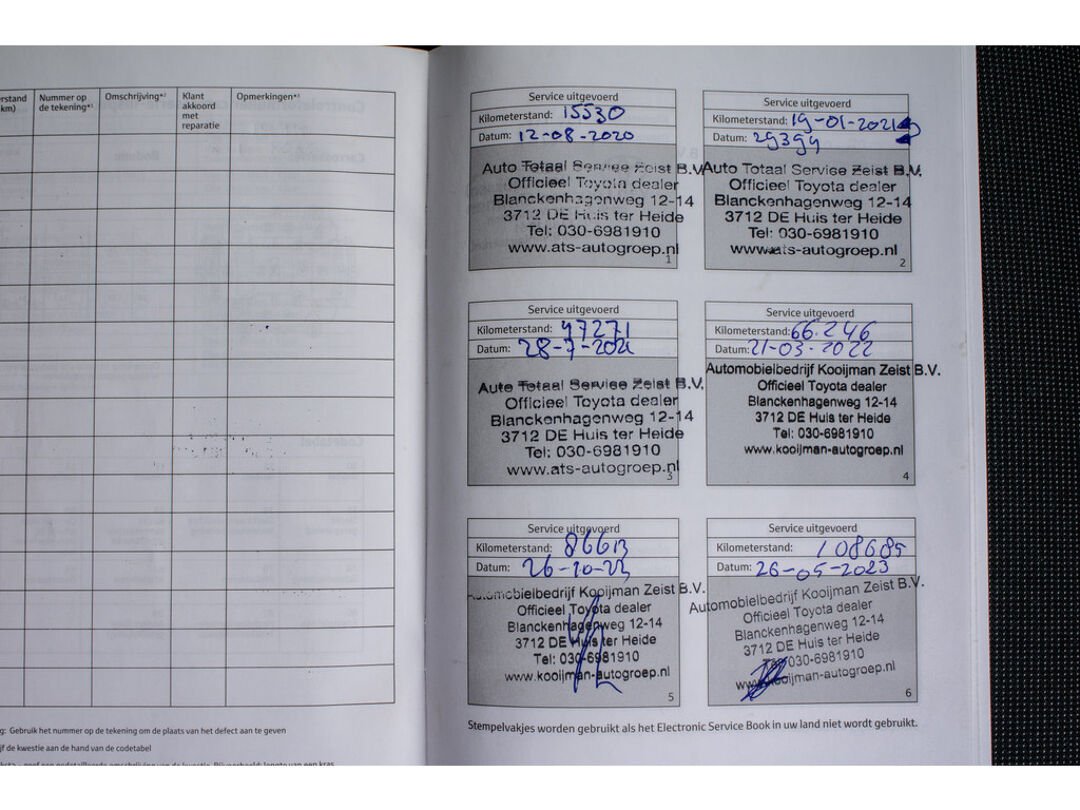 rstand
km)
Nummer op
de tekening*¹
Omschrijving*²
Klant
akkoord
met
reparatie
Opmerkingen*³
g: Gebruik het nummer op de tekening om de plaats van het defect aan te geven
jf de kwestie aan de hand van de codetabel
Service uitgevoerd
Kilometerstand: 15530
Datum: 12-08-2020
Auto Totaal Service Zeist B.V.
Officieel Toyota dealer
Blanckenhagenweg 12-14
3712 DE Huis ter Heide
Tel: 030-6981910
www.ats-autogroep.nl
1
Service uitgevoerd
Kilometerstand: 19-01-2021
Datum: 29394
Auto Totaal Service Zeist B.V.
Officieel Toyota dealer
Blanckenhagenweg 12-14
3712 DE Huis ter Heide
Tel: 030-6981910
www.ats-autogroep.nl
2
Service uitgevoerd
Kilometerstand: 47271
Datum: 28-7-2021
Auto Totaal Service Zeist B.V.
Officieel Toyota dealer
Blanckenhagenweg 12-14
3712 DE Huis ter Heide
Tel: 030-6981910
www.ats-autogroep.nl
3
Service uitgevoerd
Kilometerstand: 66.246
Datum: 21-03-2022
Automobielbedrijf Kooijman Zeist B.V.
Officieel Toyota dealer
Blanckenhagenweg 12-14
3712 DE Huis ter Heide
Tel: 030-6981910
www.kooijman-autogroep.nl
4
Service uitgevoerd
Kilometerstand: 86613
Datum:
Automobielbedrijf Kooijman Zeist B.V.
Officieel Toyota dealer
Blanckenhagenweg 12-14
3712 DE Huis ter Heide
Tel: 030-6981910
www.kooijman-autogroep.nl
5
Service uitgevoerd
Kilometerstand: 108685
Datum: 26-05-2023
Automobielbedrijf Kooijman Zeist B.V.
Officieel Toyota dealer
Blanckenhagenweg 12-14
3712 DE Huis ter Heide
Tel: 030-6981910
www.kooijman-autogroep.nl
6
Stempelvakjes worden gebruikt als het Electronic Service Book in uw land niet wordt gebruikt.